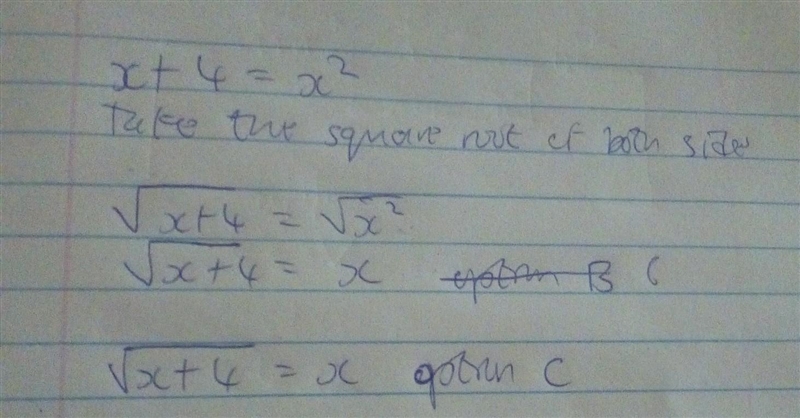 x + 4 = x²
Take the square root of both sides
√(x+4) = √x²
√(x+4) = x option B C
√(x+4) = x option C